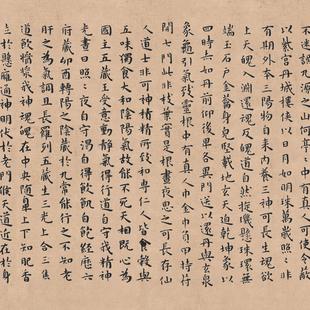 不迷誤九源之山何亭〻中有真人可使令蔽
以紫宮丹城樓侠以日月如明珠萬歲照〻非
有期外本三陽物自来内養三神可長生魂欲
上天魄入淵還魂反魄道自然旋璣懸珠環無
端玉石戶金籥身兒堅載地玄天迫乾坤象以
四時赤如丹前仰後卑各異門送以還丹與玄泉
象龜引氣致靈根中有真人巾金巾負甲持苻
開七門此非枝葉實是根晝夜思之可長存仙
人道士非可神積精所致和專仁人皆食穀與
五味獨食太和陰陽氣故能不死天相既心為
國主五藏王受意動静氣得行道自守我精神
光晝日照〻夜自守渴自得飲飢自飽經歷六
府藏卯酉轉陽之陰藏於九常能行之不知老
肝之為氣調且長羅列五藏生三光上合三焦
道飲醬漿我神魂魄在中央随鼻上下知肥香
立於懸廱通神明伏於老門候天道近在於身